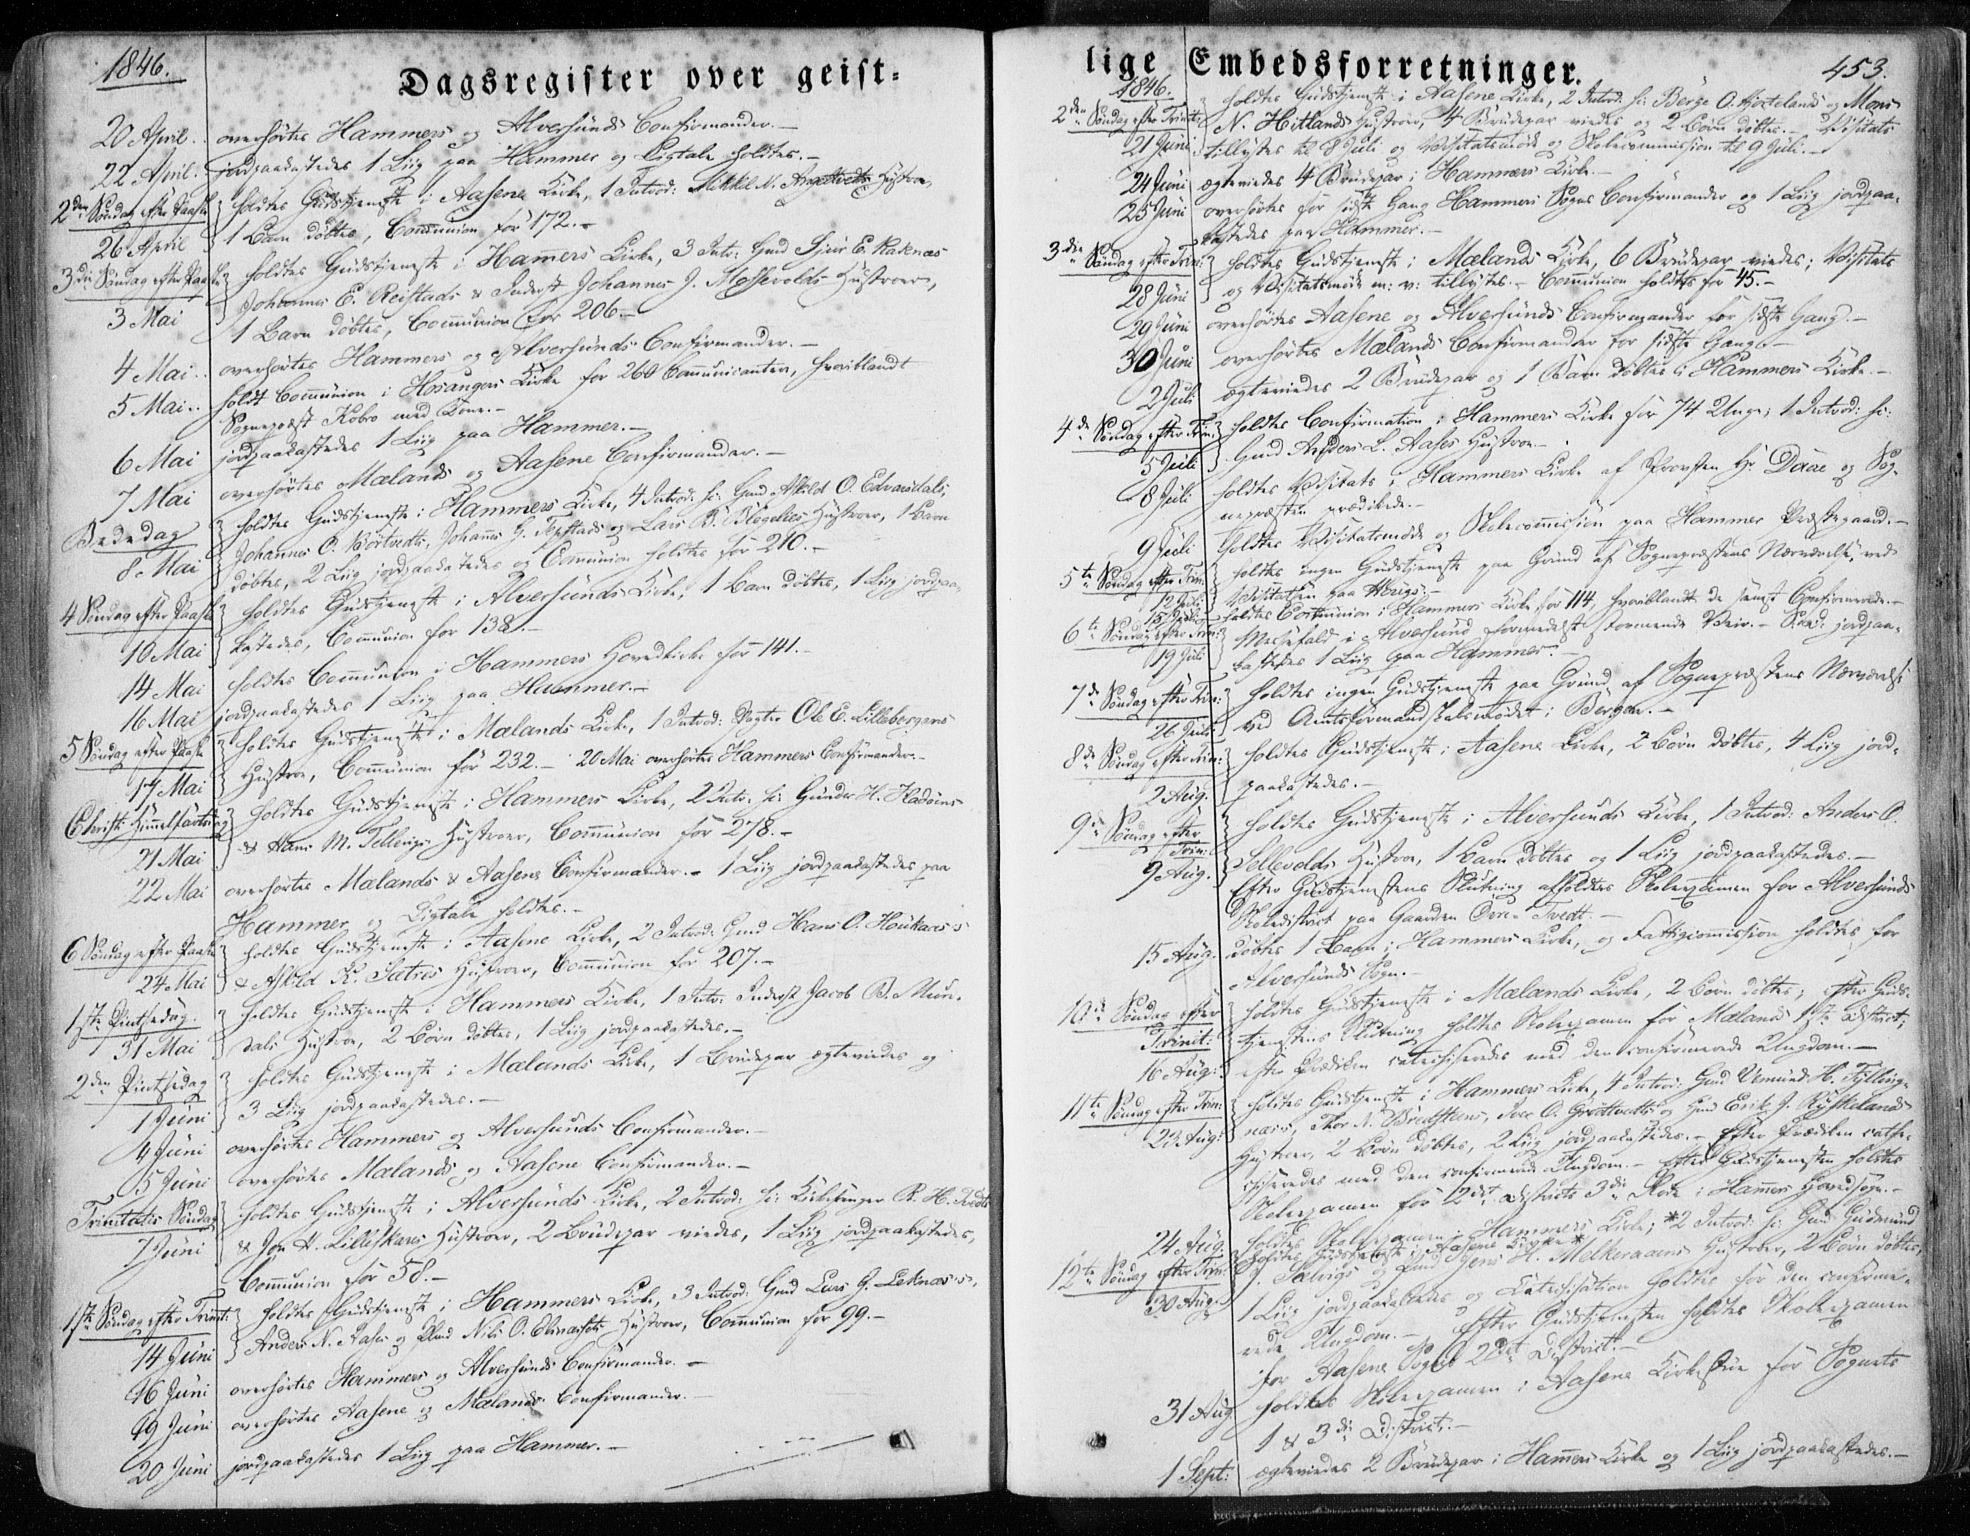 1846.
Dagsregister over geist-
20 April. overhørtes Hammers og Alversunds Confirmander.—
22 April. jordpaakastedes 1 Liig paa Hammer og Ligtale holdtes.—
2den Søndag efter Paaske holdtes Gudstjeneste i Aasene Kirke, 1 Introd: Mikkel N. Hustroe,
26 April 1 Barn døbtes, Communion for 172.—
3die Søndag efter Paaske holdtes Gudstjeneste i Hamers Kirke, 3 Intr: Gmd Sjur E. Kaknæs
3 Mai Johannes E. Reistads & Inderst Johannes J. Mosevolds Hustroer,
1 Barn døbtes, Communion for 206.—
4 Mai.. overhørtes Hammers og Alversunds Confirmander.—
5 Mai.. holdt Communion i Hosangers Kirke for 260 Communicanter, hvoriblandt
Sognepræst Kobro med Kone.—
6 Mai jordpaakastedes 1 Liig paa Hammer.—
7 Mai overhørtes Mælands og Aasene Confirmander.—
Bededag holdtes Gudstjeneste i Hammers Kirke, 4 Introd: h: Gmd Askild O. Edvarsdals,
8 Mai Johannes O. Børtvedts, Johans G. Tepstads og Lars B. Blegelies Hustroer, 1 Barn
døbtes, 2 Liig jordpaakastedes og Communion holdtes for 210.—
4 Søndag efter Paaske holdtes Gudstjeneste i Alversunds Kirke, 1 Barn døbtes, 1 Liig jordpaa-
10 Mai kastedes, Communion for 138.—
14 Mai holdtes Communion i Hammers Hovedkirke for 141.—
16 Mai jordpaakastedes 1 Liig paa Hammer.—
5 Søndag efter Paaske holdtes Gudstjeneste i Mælands Kirke, 1 Introd: Ole E. Lillebergens
17 Mai Hustroe, Communion for 232.— 20 Mai overhørtes Hammers Confirmander.—
Christi Himmelfartsdag holdtes Gudstjeneste i Hammers Kirke, 2 Intr: h: Gunder H. Fladøens
21 Mai & Hans M. Tellevigs Hustroer, Communion for 278.—
22 Mai overhørtes Mælands & Aasene Confirmander.— 1 Liig jordpaakastedes paa
Hammer og Ligtale holdtes.—
6 Søndag efter Paaske holdtes Gudstjeneste i Aasene Kirke, 2 Introd: Gmd Hans O. Houkaas's
24 Mai & Askild K. Sætres Hustroer, Communion for 207.—
1ste Pintsedag. holdtes Gudstjeneste i Hammers Kirke, 1 Intr: Inderst Jacob B. Mun-
31 Mai dals Hustroe, 2 Børn døbtes, 1 Liig jordpaakastedes.—
2den Pintsedag holdtes Gudstjeneste i Mælands Kirke, 1 Brudepar ægteviedes og
1 Juni 3 Liig jordpaakastedes.—
4 Juni overhørtes Hammers og Alversunds Confirmander.—
5 Juni overhørtes Mælands og Aasene Confirmander.—
Trinitatis Søndag holdtes Gudstjeneste i Alversunds Kirke, 2 Introd: h: Kirkesanger R. H. Tvedts
7 Juni & Jon H. Lilleskares Hustroer, 2 Brudepar viedes, 1 Liig jordpaakastedes,
Communion for 58.—
1ste Søndag efter Trinit: holdtes Gudstjeneste i Hammers Kirke, 3 Introd: Gmd Lars J. Leknæs's,
14 Juni Anders N. Aases og Nils O. Hustroer, Communion for 99.—
16 Juni overhørtes Hammers og Alversunds Confirmander.—
19 Juni overhørtes Aasene og Mælands Confirmander.—
20 Juni jordpaakastedes 1 Liig paa Hammer.—
lige Embedsforretninger.
453.
1846.
2den Søndag efter Trinit: holdtes Gudstjeneste i Aasene Kirke, 2 Introd: h: Børge O. Hjortelands og Mons
21 Juni N. Hitlands Hustroer, 4 Brudepar viedes og 2 Børn døbtes.— Visitats
tillystes til 8 Juli og Visitatsmøde og Skolecommission til 9 Juli.—
24 Juni ægteviedes 4 Brudepar i Hammers Kirke.—
25 Juni overhørtes for sidste Gang Hammers Sogns Confirmander og 1 Liig jordpaa-
kastedes paa Hammer.—
3die Søndag efter Trin: holdtes Gudstjeneste i Mælands Kirke, 6 Brudepar viedes; Visitats
28 Juni og Visitatsmøde m: v: tillystes.— Communion holdtes for 45.—
29 Juni overhørtes Aasene og Alversunds Confirmander for sidste Gang.—
30 Juni overhørtes Mælands Confirmander for sidste Gang.—
2 Juli ægteviedes 2 Brudepar og 1 Barn døbtes i Hammers Kirke.—
4de Søndag efter Trin: holdtes Confirmation i Hammers Kirke for 74 Unge; 1 Introd: h:
5 Juli Gmd Anders L. Aases Hustroe.—
8 Juli holdtes Visitats i Hammers Kirke af Provsten Hr Daae og Sog-
nepræsten prædikede.—
9 Juli holdtes Visitatsmøde og Skolecommission paa Hammer Præstegaard.—
5te Søndag efter Trin: holdtes ingen Gudstjeneste paa Grund af Sognepræstens Nærværelse ved
12 Juli Visitatsen paa Mangs.—
15 Juli holdtes Communion i Hammers Kirke for 114, hvoriblandt de sidst Confirmerede.—
6te Søndag efter Trin: Messefald i Alversund formedelst stormende Veir.— jordpaa-
19 Juli kastedes 1 Liig paa Hammer.—
7de Søndag efter Trin: holdtes ingen Gudstjeneste paa Grund af Sognepræstens Nærværelse
26 Juli ved Amtsformandskabsmødet i Bergen.—
8de Søndag efter Trin: holdtes Gudstjeneste i Aasene Kirke, 2 Børn døbtes, 4 Liig jord-
2 Aug. paakastedes.—
9de Søndag efter Trin: holdtes Gudstjeneste i Alversunds Kirke, 1 Introd: Anders O.
9 Aug. Sellevolds Hustroe, 1 Barn døbtes og 1 Liig jordpaakastedes.—
Efter Gudstjenestens Slutning afholdtes Skoleexamen for Alversunds
Skoledistrict paa Gaarden Øvre Tvedt.—
15 Aug. døbtes 1 Barn i Hammers Kirke, og Fattigcommission holdtes for
Alversunds Sogn.—
10de Søndag efter holdtes Gudstjeneste i Mælands Kirke, 2 Børn døbtes; efter Guds-
Trinit: tjenestens Slutning holdtes Skoleexamen for Mælands 1ste District;
16 Aug: efter Prædiken catechiseredes med den confirmerede Ungdom.—
11te Søndag efter Trin: holdtes Gudstjeneste i Hammers Kirke, 4 Introd: Gmd Vemund H. Fylling-
23 Aug: næss, Thor N. Bredsteens, Iver O. Grøttvedts og Gmd Erik J. Ryskelands
Hustroer, 2 Børn døbtes, 2 Liig jordpaakastedes.— Efter Prædiken cate-
chiseredes med den confirmerede Ungdom.— Efter Gudstjenesten holdtes
Skoleexamen for 2det Districts 3die Rode i Hamers Hovedsogn.—
24 Aug. holdtes Skoleexamen i Hammers Kirke; *2 Introd: h: Gmd Gudmund
12te Søndag efter Trin: holdtes Gudstjeneste i Aasene Kirke* J. Sælvigs og Gmd H. Melkeraaens Hustroer, 2 Børn døbtes,
30 Aug. 1 Liig jordpaakastedes og Catechisation holdtes for den confirme-
rede Ungdom.— Efter Gudstjenesten holdtes Skoleexamen
for Aasene Sogns 2det District.—
31 Aug. holdtes Skoleexamen i Aasene Kirkestue for Sognets
1 & 3die District.—
1 Sept: ægteviedes 2 Brudepar i Hamers Kirke og 1 Liig jordpaakastedes.—